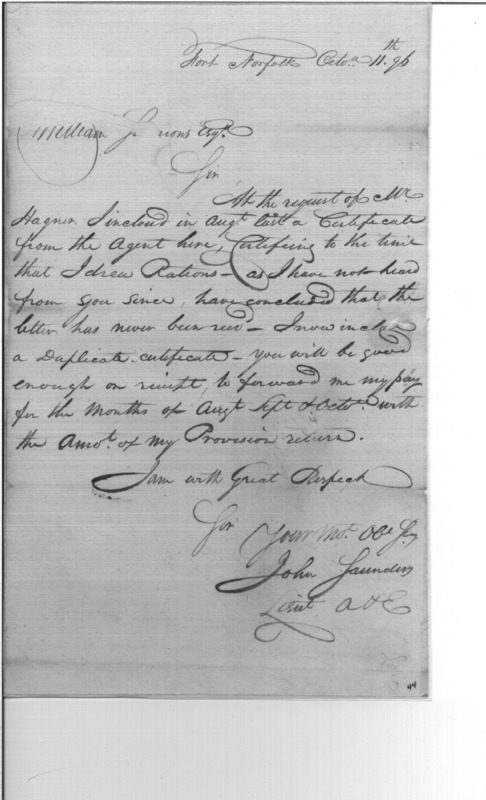 Fort Norfolk Octor. 11.th 96
William Simmons Esqr.
Sir
At the request of Mr
Hagner I inclosd in Augt last a Certificate
from the Agent here, Certifieing to the time
that I drew Rations - as I have not heard
from you since, have concluded that the
letter has never been recd - I now inclose
a Duplicate certificate - you will be good
enough on receipt, to forward me my pay
for the Months of Augt Sept & Octor. with
the Amot. of my Provision return.
I am with Great Respect
Sir
Your Mot. Obt Sr
John Saunders
Lieut A & E
44